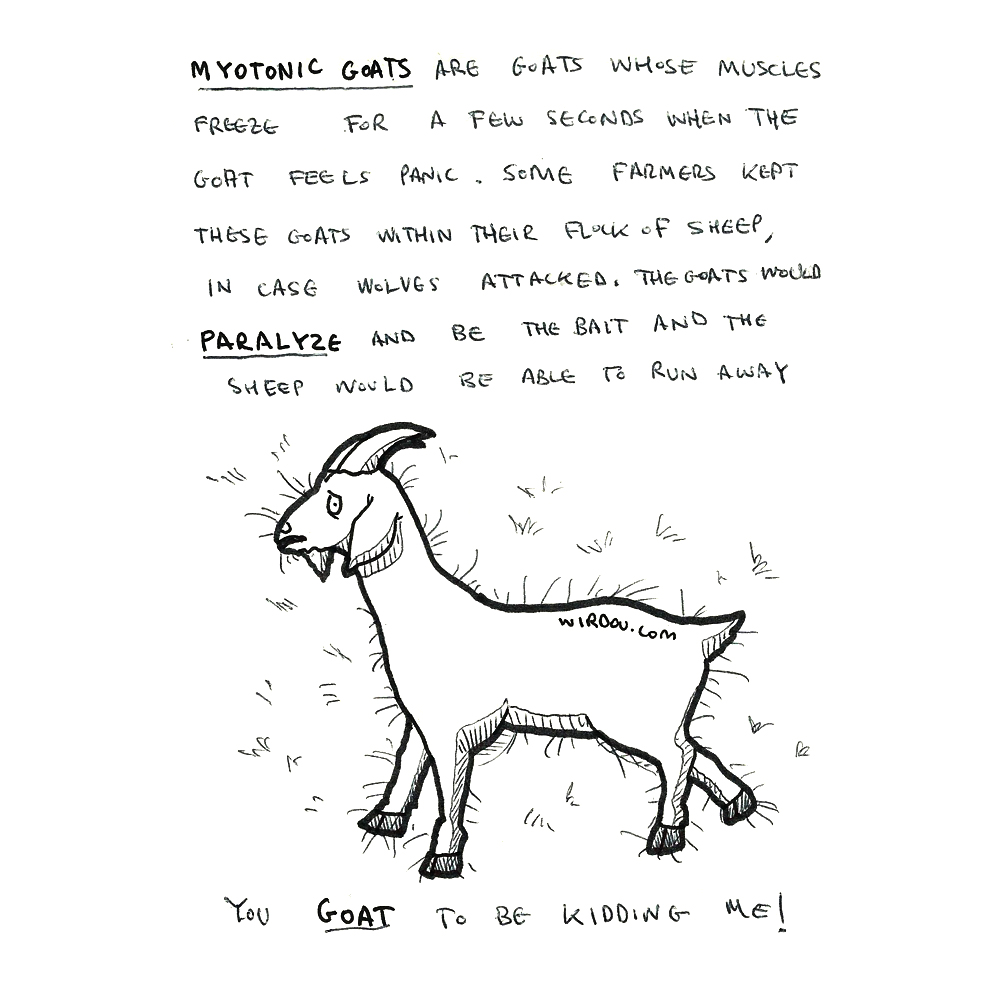 MYOTONIC GOATS ARE GOATS WHOSE MUSCLES
FREEZE FOR A FEW SECONDS WHEN THE
GOAT FEELS PANIC. SOME FARMERS KEPT
THESE GOATS WITHIN THEIR FLOCK OF SHEEP,
IN CASE WOLVES ATTACKED. THE GOATS WOULD
PARALYZE AND BE THE BAIT AND THE
SHEEP WOULD BE ABLE TO RUN AWAY
WIRDOU.COM
YOU GOAT TO BE KIDDING ME!